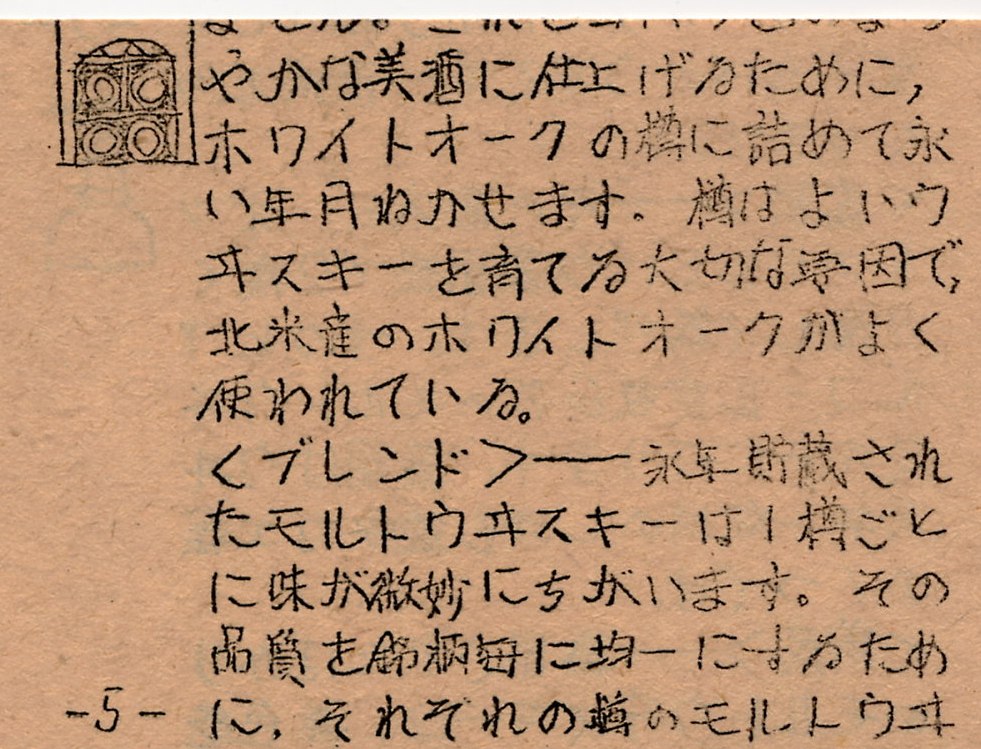 やかな美酒に仕上げるために,
ホワイトオークの樽に詰めて永
い年月ねかせます。樽はよいウ
ヰスキーを育てる大切な要因で,
北米産のホワイトオークがよく
使われている。
<ブレンド>――永年貯蔵され
たモルトウヰスキーは1樽ごと
に味が微妙にちがいます。その
品質を銘柄毎に均一にするため
に,それぞれの樽のモルトウヰ
-5-